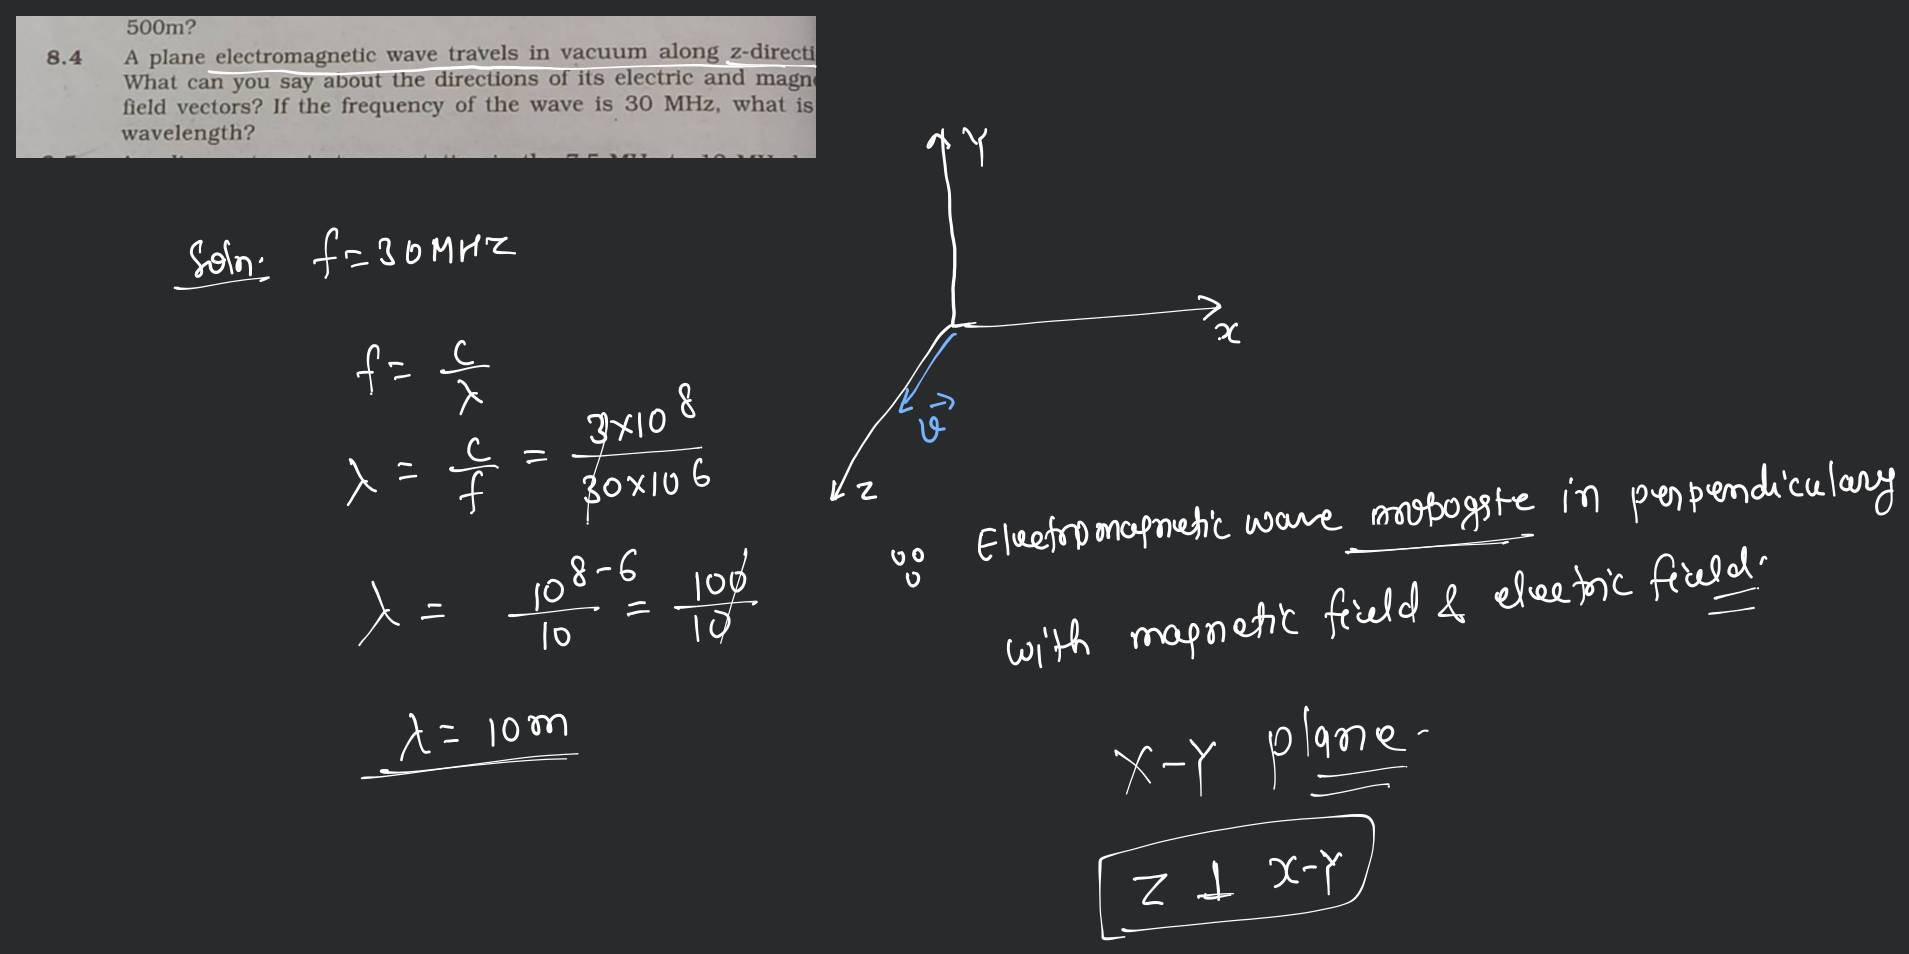 500m?
8.4 A plane electromagnetic wave travels in vacuum along z-directi
What can you say about the directions of its electric and magn
field vectors? If the frequency of the wave is 30 MHz, what is
wavelength?
Soln. f = 30 MHz
f = c/λ
λ = c/f = 3×10^8 / 30×10^6
λ = 10^(8-6) / 10 = 100/10
λ = 10m
Y
x
v⃗
z
Electromagnetic wave in perpendiculary
with magnetic field & electric field.
X-Y plane.
Z ⊥ x-Y